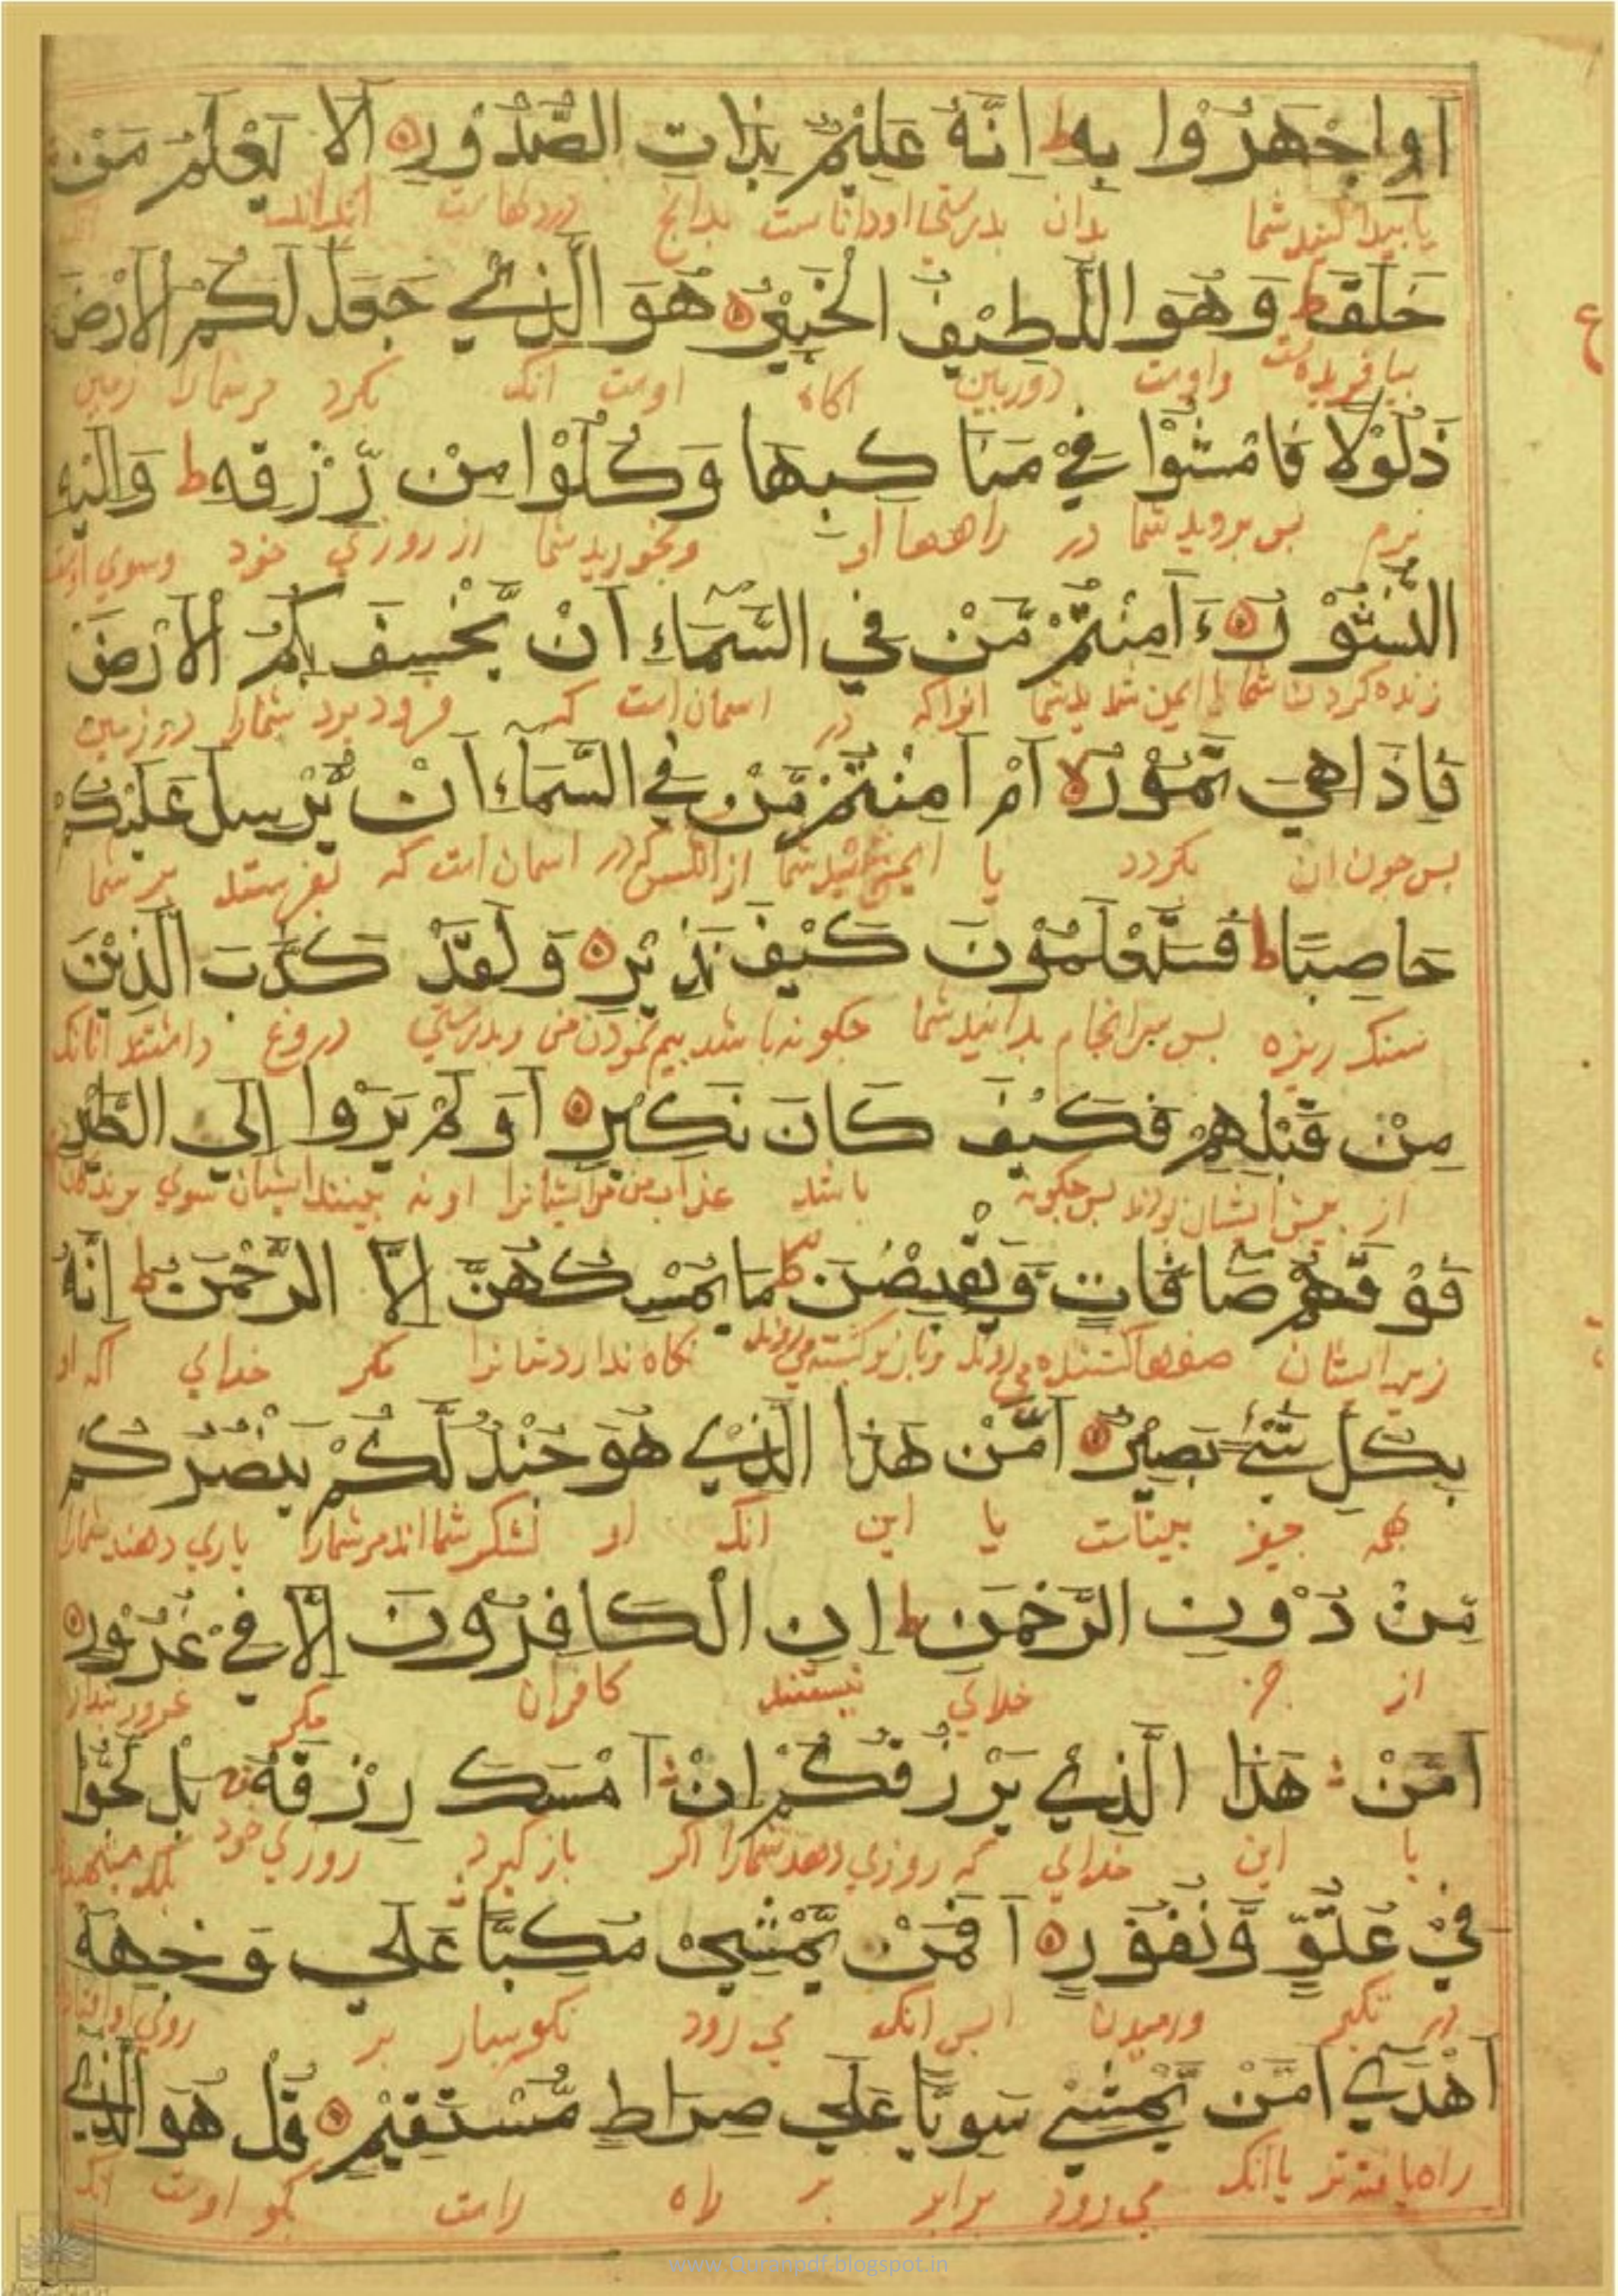 اَوِاجْهَرُوْا بِهٖ ط اِنَّهُ عَلِيْمٌ بِذَاتِ الصُّدُوْرِ ۝ اَلَا يَعْلَمُ مَنْ
يا بيدا كنيد شما بدان بدرستي او دانا است بدانچ در دلها ست
خَلَقَ ط وَهُوَ اللَّطِيْفُ الْخَبِيْرُ ۝ هُوَ الَّذِيْ جَعَلَ لَكُمُ الْاَرْضَ
ع
بيافريده است واوست دوربين اكاه اوست انك كرد مر شما را زمين
ذَلُوْلًا فَامْشُوْا فِيْ مَنَاكِبِهَا وَكُلُوْا مِنْ رِّزْقِهٖ ط وَاِلَيْهِ
نرم بس برويد شما در راههاا او وبخوريد شما از روزي خود وسوي اوست
النُّشُوْرُ ۝ ءَاَمِنْتُمْ مَّنْ فِي السَّمَاءِ اَنْ يَّخْسِفَ بِكُمُ الْاَرْضَ
زنده كردن شما ايمن شديد شما انراكه در اسمان است كه فرود برد شمارا در زمين
فَاِذَا هِيَ تَمُوْرُ لا اَمْ اَمِنْتُمْ مَّنْ فِي السَّمَاءِ اَنْ يُّرْسِلَ عَلَيْكُمْ
بس جون ان بكردد يا ايمن شديد شما از انكس كه در اسمان است كه بفرستد بر شما
حَاصِبًا ط فَسَتَعْلَمُوْنَ كَيْفَ نَذِيْرِ ۝ وَلَقَدْ كَذَّبَ الَّذِيْنَ
سنك ريزه بس سرانجام بدانيد شما جكونه باشد بيم نمودن من وبدرستي دروغ داشتند انانك
مِنْ قَبْلِهِمْ فَكَيْفَ كَانَ نَكِيْرِ ۝ اَوَلَمْ يَرَوْا اِلَي الطَّيْرِ
از بيش ايشان بودند بس جكونه باشد عذاب من مر ايشانرا او نه بينند ايشان سوي مرندكان
فَوْقَهُمْ صَافَّاتٍ وَّيَقْبِضْنَ مَا يُمْسِكُهُنَّ اِلَّا الرَّحْمٰنُ ط اِنَّهُ
زبر ايشان صفها كشنده مي روند وباز كشته مي روند نكاه ندارد شانرا مكر خداي اكه او
بِكُلِّ شَيْءٍ بَصِيْرٌ ۝ اَمَّنْ هٰذَا الَّذِيْ هُوَ جُنْدٌ لَّكُمْ يَنْصُرُكُمْ
بهمه جيز بيناست يا اين انك او لشكر شما اند مر شمارا ياري دهند شمارا
مِّنْ دُوْنِ الرَّحْمٰنِ ط اِنِ الْكَافِرُوْنَ اِلَّا فِيْ غُرُوْرٍ ۝
از جز خداي نيستند كافران مكر غرور
اَمَّنْ هٰذَا الَّذِيْ يَرْزُقُكُمْ اِنْ اَمْسَكَ رِزْقَهُ بَلْ لَجُّوْا
يا اين خداي كه روزي دهد شمارا اكر باز كيرد روزي خود
فِيْ عُتُوٍّ وَّنُفُوْرٍ ۝ اَفَمَنْ يَّمْشِيْ مُكِبًّا عَلٰي وَجْهِهٖ
در تكبر ورميدن ابس انك مي رود نكوسار بر روي او
اَهْدٰي اَمَّنْ يَّمْشِيْ سَوِيًّا عَلٰي صِرَاطٍ مُّسْتَقِيْمٍ ۝ قُلْ هُوَ الَّذِيْ
راه يافته تر يا انك مي رود برابر بر راه راست بكو اوست انك
www.Quranpdf.blogspot.in